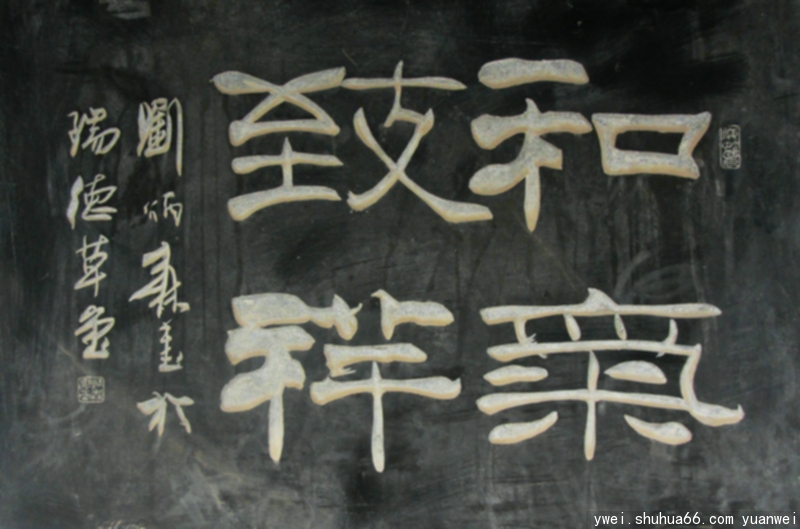 和氣
致祥
劉炳森書於
瑞德草堂
ywei.shuhua66.com yuanwei